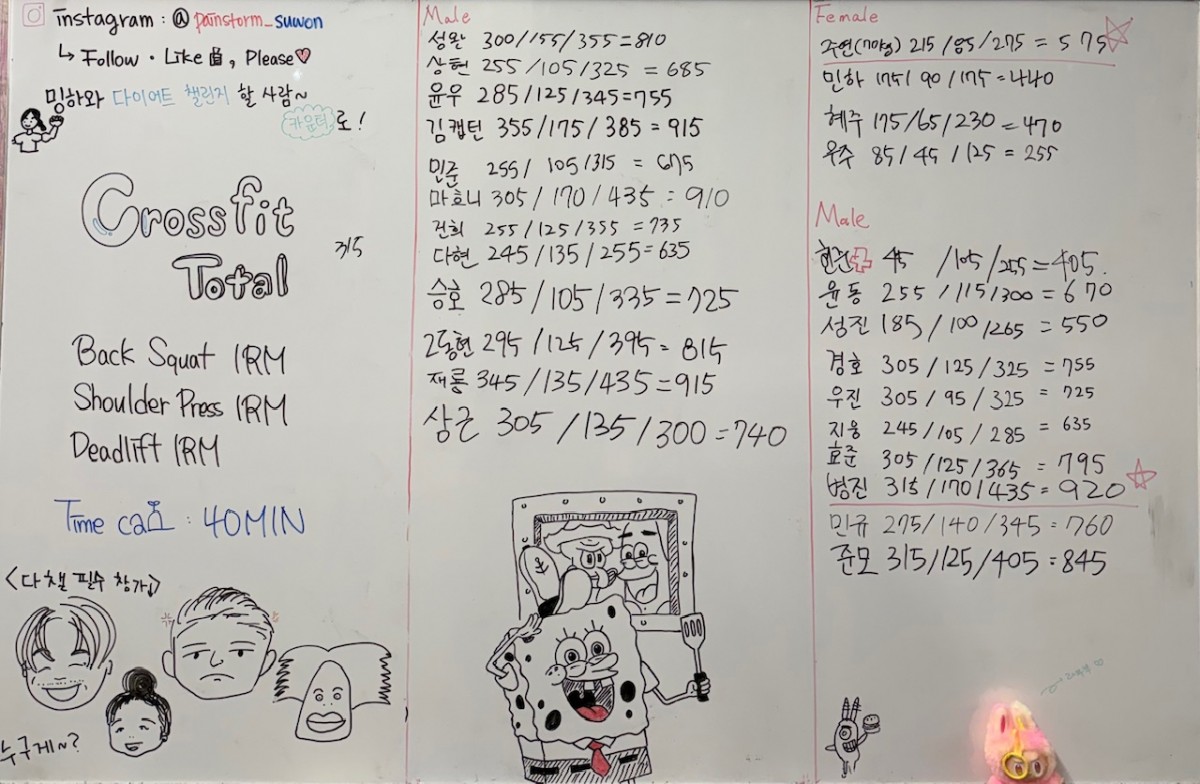 instagram : @ painstorm_suwon
↳ Follow · Like , Please♡
밍하와 다이어트 챌린지 할 사람~
카운터로!
Crossfit
Total
3/5
Back Squat 1RM
Shoulder Press 1RM
Deadlift 1RM
Time cap : 40MIN
<다챌 필수 참가>
누구게~?
Male
성완 300/155/355=810
상현 255/105/325 = 685
윤우 285/125/345=755
김캡틴 355/175/385 = 915
민준 255/ 105/315 = 675
마효니 305/170/435 = 910
건희 255/125/355 = 735
다현 245/135/255=635
승호 285/105/335=725
2동현 295/125/395= 815
재룡 345/135/435=915
삼근 305/135/300=740
Female
주연 215/85/275 = 575
민하 175/90/175=440
혜주 175/65/230 = 470
우주 85/45/125 = 255
Male
45 /105/255=405.
윤동 255/115/300 = 670
성진 185/100/265 = 550
경호 305/125/325 = 755
우진 305/95/325 = 725
지웅 245/105/285 = 635
효준 305/125/365 = 795
병진 315/170/435= 920
민규 275/140/345 = 760
준모 315/125/405 = 845